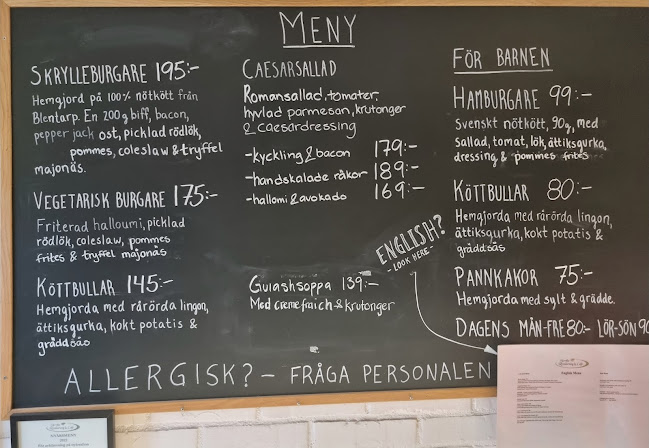 MENY
SKRYLLEBURGARE 195:-
Hemgjord på 100% nötkött från
Blentarp. En 200g biff, bacon,
pepper jack ost, picklad rödlök,
pommes, coleslaw & tryffel
majonäs.
VEGETARISK BURGARE 175:-
Friterad halloumi, picklad
rödlök, coleslaw, pommes
frites & tryffel majonäs
KÖTTBULLAR 145:-
Hemgjorda med rårörda lingon,
ättiksgurka, kokt potatis &
gräddsås
CAESARSALLAD
Romansallad, tomater,
hyvlad parmesan, krutonger
& caesardressing
-kyckling & bacon 179:-
-handskalade räkor 189:-
-hallomi & avokado 169:-
ENGLISH?
- LOOK HERE -
Gulashsoppa 139:-
Med creme fraich & krutonger
FÖR BARNEN
HAMBURGARE 99:-
Svenskt nötkött, 90g, med
sallad, tomat, lök, ättiksgurka,
dressing, & pommes frites
KÖTTBULLAR 80:-
Hemgjorda med rårörda lingon,
ättiksgurka, kokt potatis &
gräddsås
PANNKAKOR 75:-
Hemgjorda med sylt & grädde.
DAGENS MÅN-FRE 80:- LÖR-SÖN 90
ALLERGISK? - FRÅGA PERSONALEN
English Menu